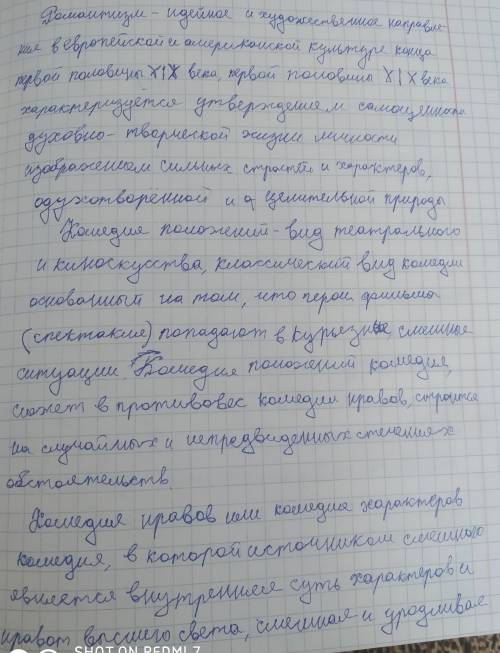 Романтизм - идейное и художественное направле
ния в европейской и американской культуре конца
первой половины XIX века, первой половины XIX века
характеризуется утверждением самоценности
духовно - творческой жизни личности
изображением сильных страстей и характеров,
одухотворенной и целительной природы
Комедия положений - вид театрального
и киноискусства, классический вид комедии
основанный на том, что герои фильма
(спектакля) попадают в курьезные, смешные
ситуации. Комедия положений комедия,
сюжет в противовес комедии нравов, строится
на случайных и непредвиденных стечениях
обстоятельств.
Комедия нравов или комедия характеров
комедия, в которой источником смешного
является внутренняя суть характеров и
нравов высшего света, смешная и уродливая
SHOT ON REDMI 7